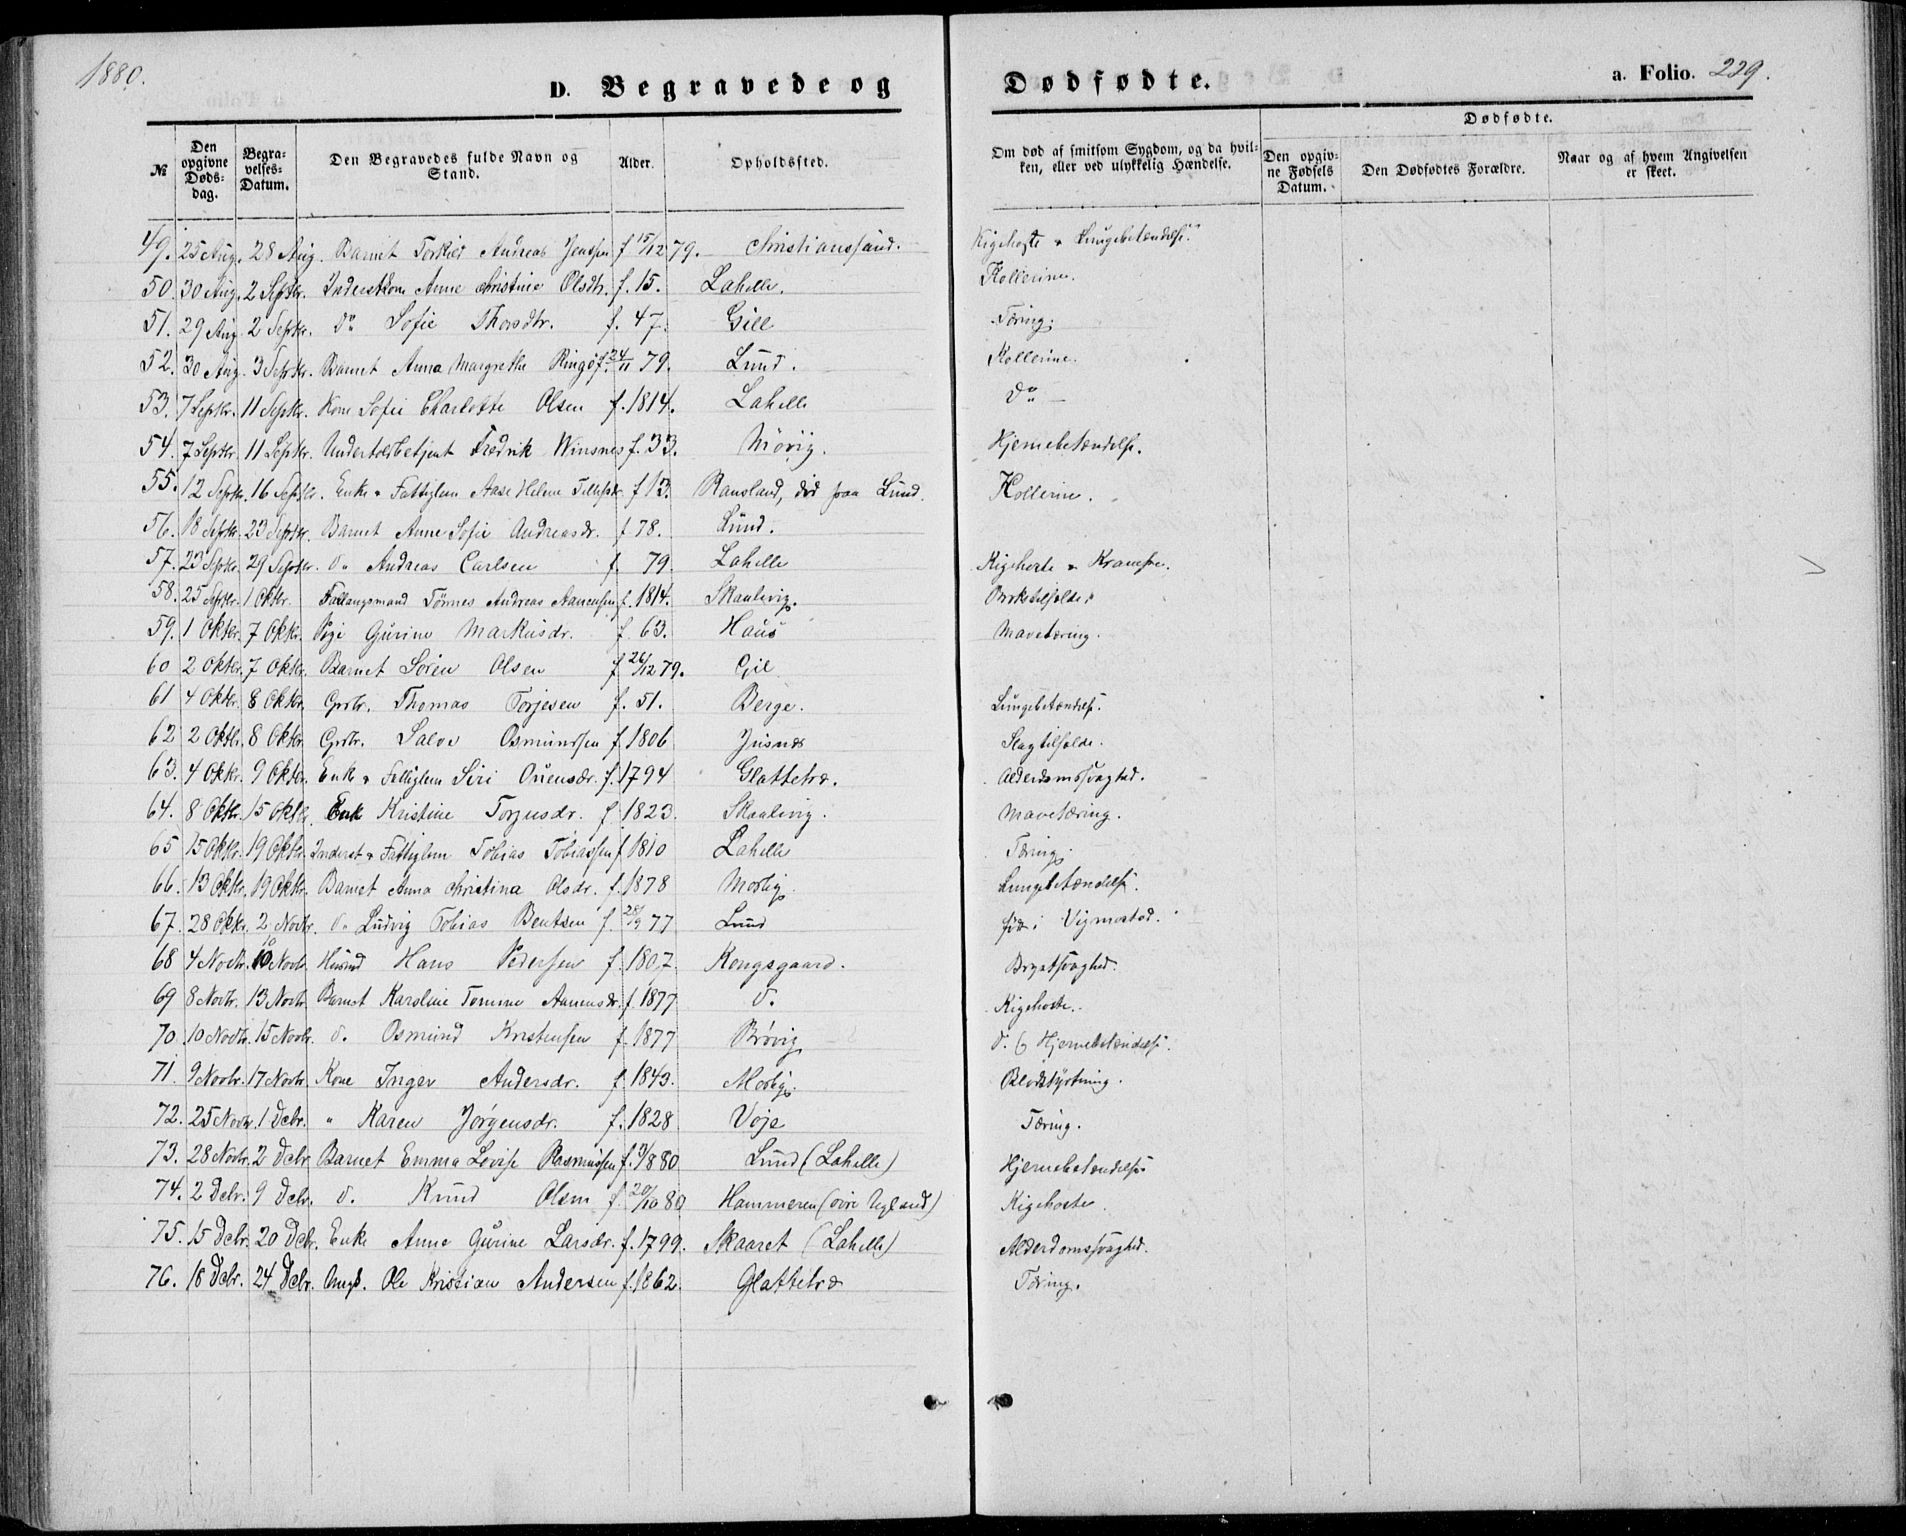 1880.
D. Begravede og Dødfødte.
a. Folio. 229.
№
Den opgivne Døds-dag.
Begra-velses-Datum.
Den Begravedes fulde Navn og Stand.
Alder.
Opholdssted.
Om død af smitsom Sygdom, og da hvil-ken, eller ved ulykkelig Hændelse.
Dødfødte.
Den opgiv-ne Fødsels Datum.
Den Dødfødtes Forældre.
Naar og af hvem Angivelsen er skeet.
49. 25 Aug. 28 Aug. Barnet Torkild Andreas Jensen f 15/12 79. Christianssand. Kigehoste & Lungebetændelse.
50. 30 Aug. 2 Septbr. Inderstkone Anne Christine Olsdtr. f. 15. Lahelle. Kollerine.
51. 29 Aug. 2 Septbr. Do Sofie Thorsdtr. f. 47. Gill Tæring.
52. 30 Aug. 3 Septbr. Barnet Anna Margrethe Ringø f. 24/11 79. Lund. Kollerine.
53. 7 Septbr. 11 Septbr. Kone Sofie Charlotte Olsen f. 1814. Lahelle Do
54. 7 Septbr. 11 Septbr. Undertoldbetjent Fredrik Winsnes f. 33. Møvig. Hjernebetændelse.
55. 12 Septbr. 16 Septbr. Enke & Fattiglem Aase Helene Tellefsdr f 13. Rausland, død paa Lund. Kollerine.
56. 18 Septbr. 23 Septbr. Barnet Anne Sofie Andreasdr. f 78. Lund.
57. 23 Septbr. 29 Septbr. do Andreas Carlsen f. 79. Lahelle Kigehoste & Krampe.
58. 25 Septbr. 1 Oktbr. Tønnes Andreas Aanensen f. 1814. Skaalevig.
59. 1 Oktbr. 7 Oktbr. Pige Gurine Markusdr. f. 63. Haus Mavetæring.
60 2 Oktbr. 7 Oktbr. Barnet Søren Olsen f 26/12 79. Gil
61 4 Oktbr. 8 Oktbr. Grbr. Thomas Torjesen f. 51. Berge. Lungebetændelse.
62 2 Oktbr. 8 Oktbr. Grbr. Salve Osmundsen f 1806 Jusnes Slagtilfælde.
63. 4 Oktbr. 9 Oktbr. Enke & Fattiglem Siri Ouensdr. f. 1794 Glattetræ. Alderdomssvaghed.
64. 8 Oktbr. 15 Oktbr. Enk Kristine Torjusdr. f 1823. Skaalevig. Mavetæring.
65 15 Oktbr. 19 Oktbr. Inderst & Fattiglem Tobias Tobiassen f 1810 Lahelle Tæring.
66. 13 Oktbr. 19 Oktbr. Barnet Anna Christina Olsdr. f. 1878 Mosby. Lungebetændelse.
67. 28 Oktbr. 2 Novbr. do Ludvig Tobias Bentsen f. 28/9 77 Lund fød i Vigmostad.
68 4 Novbr. 10 Novbr. Husmd Hans Pedersen f. 1807. Kongsgaard. Brystsvaghed.
69 8 Novbr. 13 Novbr. Barnet Karoline Tomine Aanensdr. f. 1877 d. Kigehoste.
70. 10 Novbr. 15 Novbr. d. Osmund Kristensen f. 1877 Brøvig d. og Hjernebetændelse.
71. 9 Novbr. 17 Novbr. Kone Inger Andersdr. f. 1843. Mosby. Blodstyrtning.
72. 25 Novbr. 1 Debr. " Karen Jørgensdr. f. 1828 Voje Tæring.
73. 28 Novbr. 2 Debr. Barnet Emma Lovise Rasmussen f. 9/8 80 Lund (Lahelle) Hjernebetændelse
74. 2 Debr. 9 Debr. d. Knud Olsen f. 20/10 80 Hammeren (øvre Ugland) Kigehoste
75. 15 Debr. 20 Debr. Enke Anne Gurine Larsdr. f. 1799. Skaaret (Lahelle) Alderdomssvaghed.
76. 18 Debr. 24 Debr. Ungk. Ole Kristian Andersen f. 1862. Glattetræ Tæring.